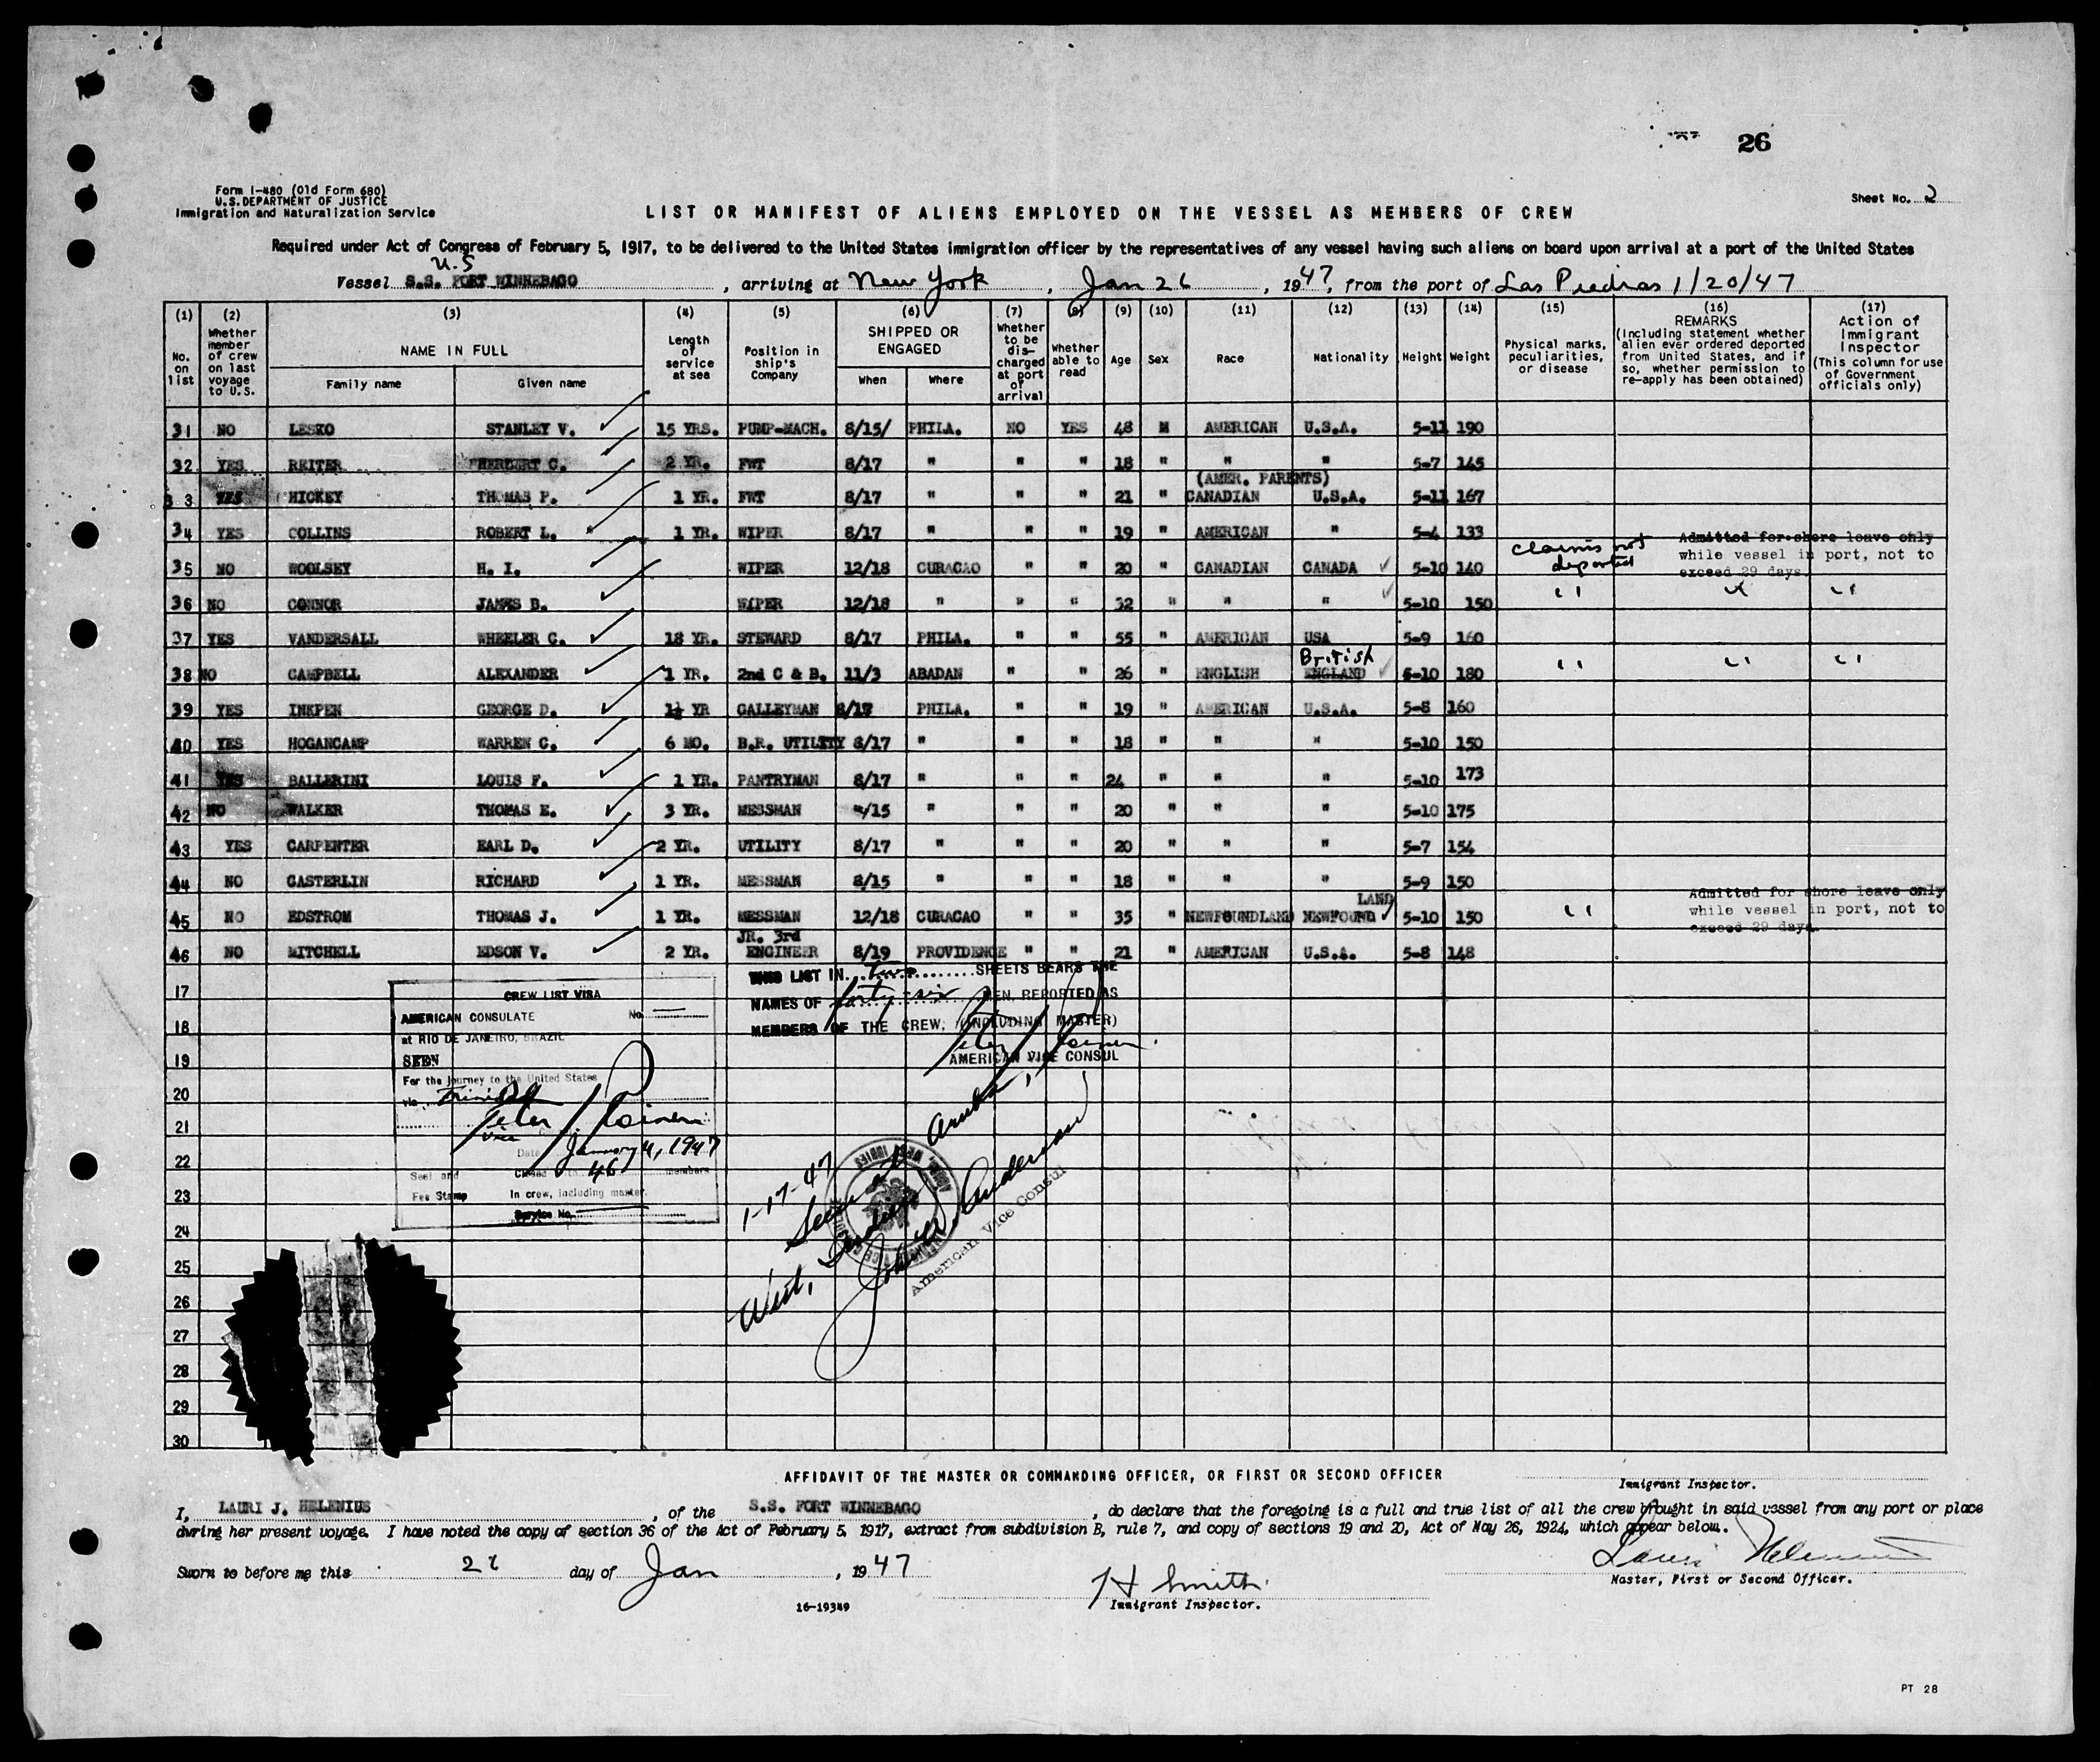 26
Form I-480 (Old Form 680)
U.S. DEPARTMENT OF JUSTICE
Immigration and Naturalization Service
Sheet No. 2
LIST OR MANIFEST OF ALIENS EMPLOYED ON THE VESSEL AS MEMBERS OF CREW
Required under Act of Congress of February 5, 1917, to be delivered to the United States immigration officer by the representatives of any vessel having such aliens on board upon arrival at a port of the United States
U.S
Vessel S.S. FORT WINNEBAGO, arriving at New York, Jan 26, 1947, from the port of Las Piedras 1/20/47
(1) No. on list
(2) Whether member of crew on last voyage to U.S.
(3) NAME IN FULL
Family name Given name
(4) Length of service at sea
(5) Position in ship's Company
(6) SHIPPED OR ENGAGED
When Where
(7) Whether to be discharged at port of arrival
(8) Whether able to read
(9) Age
(10) Sex
(11) Race
(12) Nationality
(13) Height
(14) Weight
(15) Physical marks, peculiarities, or disease
(16) REMARKS (Including statement whether alien ever ordered deported from United States, and if so, whether permission to re-apply has been obtained)
(17) Action of Immigrant Inspector (This column for use of Government officials only)
31 NO LESKO STANLEY V. 15 YRS. PUMP-MACH. 8/15/ PHILA. NO YES 48 M AMERICAN U.S.A. 5-11 190
32 YES REITER HERBERT C. 2 YR. FWT 8/17 " " " 18 " " " 5-7 145
(AMER. PARENTS)
33 YES HICKEY THOMAS P. 1 YR. FWT 8/17 " " " 21 " CANADIAN U.S.A. 5-11 167
34 YES COLLINS ROBERT L. 1 YR. WIPER 8/17 " " " 19 " AMERICAN " 5-4 133
35 NO WOOLSEY H. I. WIPER 12/18 CURACAO " " 20 " CANADIAN CANADA 5-10 140 claims not deported Admitted for shore leave only while vessel in port, not to exceed 29 days.
36 NO CONNOR JAMES B. WIPER 12/18 " " " 32 " " " 5-10 150 " " "
37 YES VANDERSALL WHEELER C. 18 YR. STEWARD 8/17 PHILA. " " 55 " AMERICAN USA 5-9 160
British
38 NO CAMPBELL ALEXANDER 1 YR. 2nd C & B. 11/3 ABADAN " " 26 " ENGLISH ENGLAND 6-10 180 " " "
39 YES INKPEN GEORGE D. 1½ YR GALLEYMAN 8/17 PHILA. " " 19 " AMERICAN U.S.A. 5-8 160
40 YES HOGANCAMP WARREN C. 6 MO. B.R. UTILITY 8/17 " " " 18 " " " 5-10 150
41 YES BALLERINI LOUIS F. 1 YR. PANTRYMAN 8/17 " " " 24 " " " 5-10 173
42 NO WALKER THOMAS E. 3 YR. MESSMAN /15 " " " 20 " " " 5-10 175
43 YES CARPENTER EARL D. 2 YR. UTILITY 8/17 " " " 20 " " " 5-7 154
44 NO CASTERLIN RICHARD 1 YR. MESSMAN 8/15 " " " 18 " " " 5-9 150
LAND
45 NO EDSTROM THOMAS J. 1 YR. MESSMAN 12/18 CURACAO " " 35 " NEWFOUNDLAND NEWFOUND 5-10 150 " Admitted for shore leave only while vessel in port, not to exceed 29 days.
JR. 3rd
46 NO MITCHELL EDSON V. 2 YR. ENGINEER 8/19 PROVIDENCE " " 21 " AMERICAN U.S.A. 5-8 148
THIS LIST IN two SHEETS BEARS THE
NAMES OF forty-six MEN, REPORTED AS
MEMBERS OF THE CREW, (INCLUDING MASTER)
AMERICAN VICE CONSUL
CREW LIST VISA
AMERICAN CONSULATE No.
at RIO DE JANEIRO, BRAZIL
SEEN
For the journey to the United States
via Trinidad
Vice
Date January 4, 1947
46 members
Seal and Fee Stamp
In crew, including master.
Service No.
1-17-47
Seen at Aruba,
West Indies
John W. Anderson
American Vice Consul
17
18
19
20
21
22
23
24
25
26
27
28
29
30
AFFIDAVIT OF THE MASTER OR COMMANDING OFFICER, OR FIRST OR SECOND OFFICER
Immigrant Inspector.
I, LAURI J. HELENIUS, of the S.S. FORT WINNEBAGO, do declare that the foregoing is a full and true list of all the crew brought in said vessel from any port or place
during her present voyage. I have noted the copy of section 36 of the Act of February 5, 1917, extract from subdivision B, rule 7, and copy of sections 19 and 20, Act of May 26, 1924, which appear below.
Sworn to before me this 26 day of Jan, 1947
H Smith
Immigrant Inspector.
Lauri Helenius
Master, First or Second Officer.
16-19349
PT 28